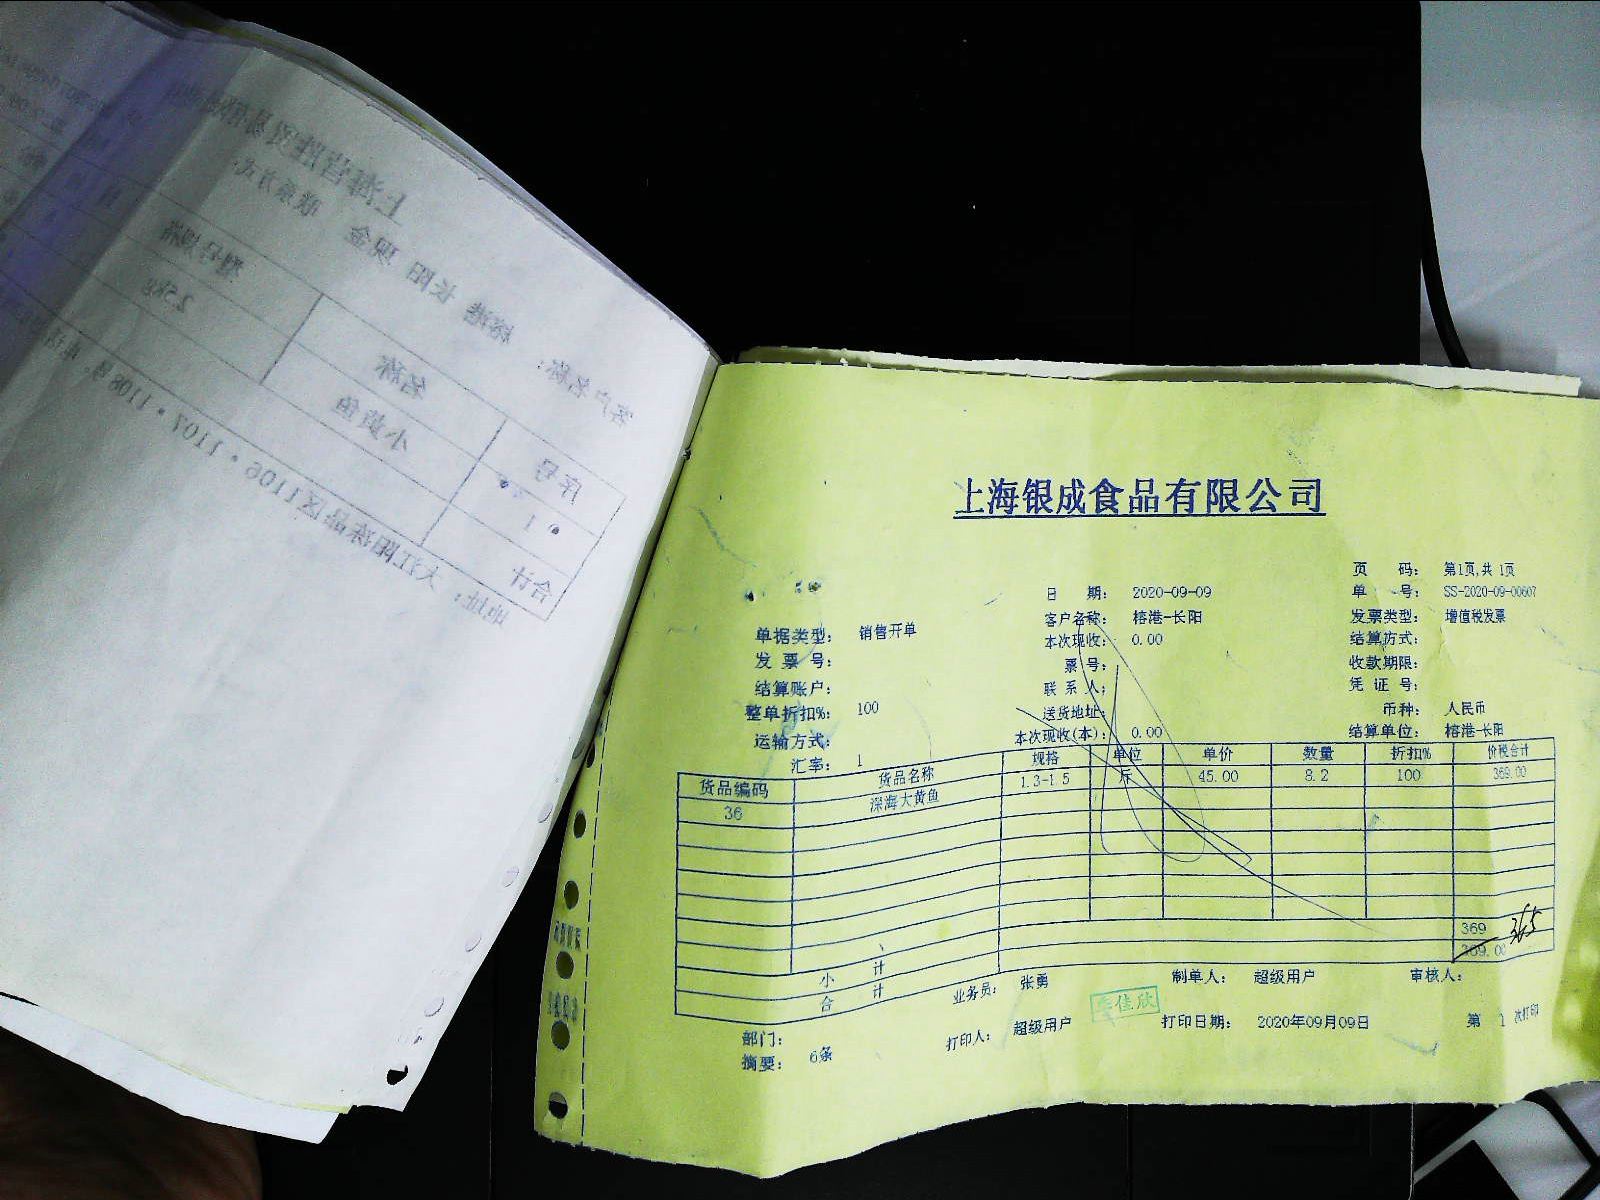 上海银成食品有限公司
页 码： 第1页,共 1页
日 期： 2020-09-09 单 号： SS-2020-09-00607
单据类型： 销售开单 客户名称： 榕港-长阳 发票类型： 增值税发票
发 票 号： 本次现收： 0.00 结算方式：
结算账户： 票 号： 收款期限：
整单折扣%： 100 联 系 人： 凭 证 号：
运输方式： 送货地址： 币种： 人民币
汇率： 1 本次现收(本)： 0.00 结算单位： 榕港-长阳
货品编码 货品名称 规格 单位 单价 数量 折扣% 价税合计
36 深海大黄鱼 1.3-1.5 斤 45.00 8.2 100 369.00
小 计 369
合 计 369.00 365
部门： 业务员： 张勇 制单人： 超级用户 审核人：
摘要： 6条 打印人： 超级用户 打印日期： 2020年09月09日 第 1 次打印
佳欣
客户名称： 榕港 长阳 现金 联系方式
序号 名称 型号规格
1 小黄鱼 2.5kg
合计
地址： 大江阳冻品区1106·1107·1108号